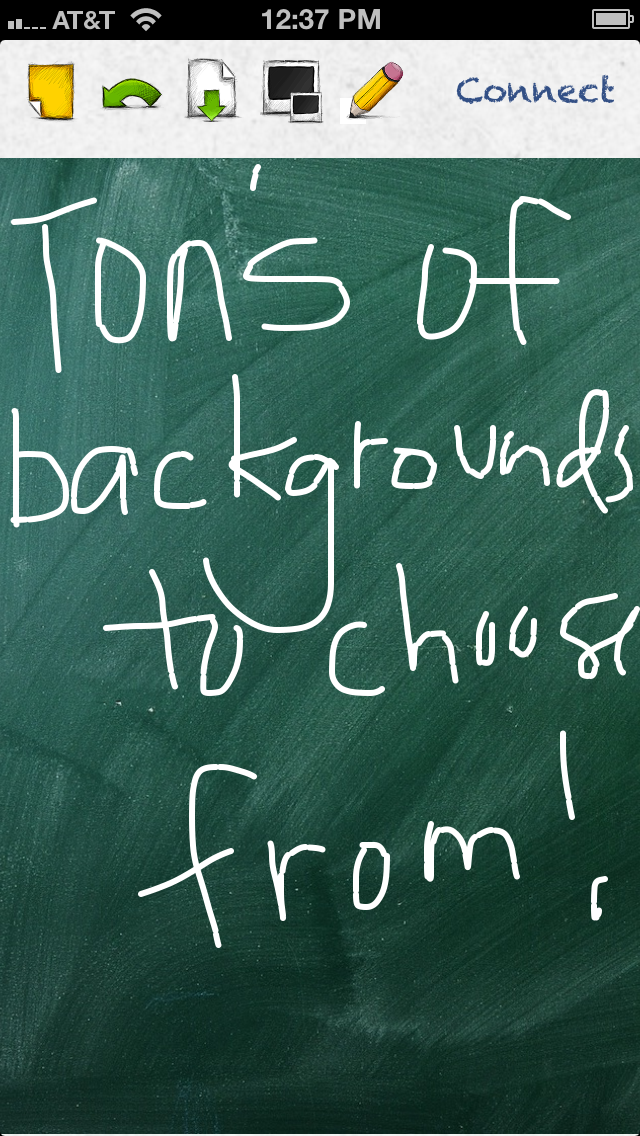 AT&T 12:37 PM
Connect
Ton's of
backgrounds
to choose
from!